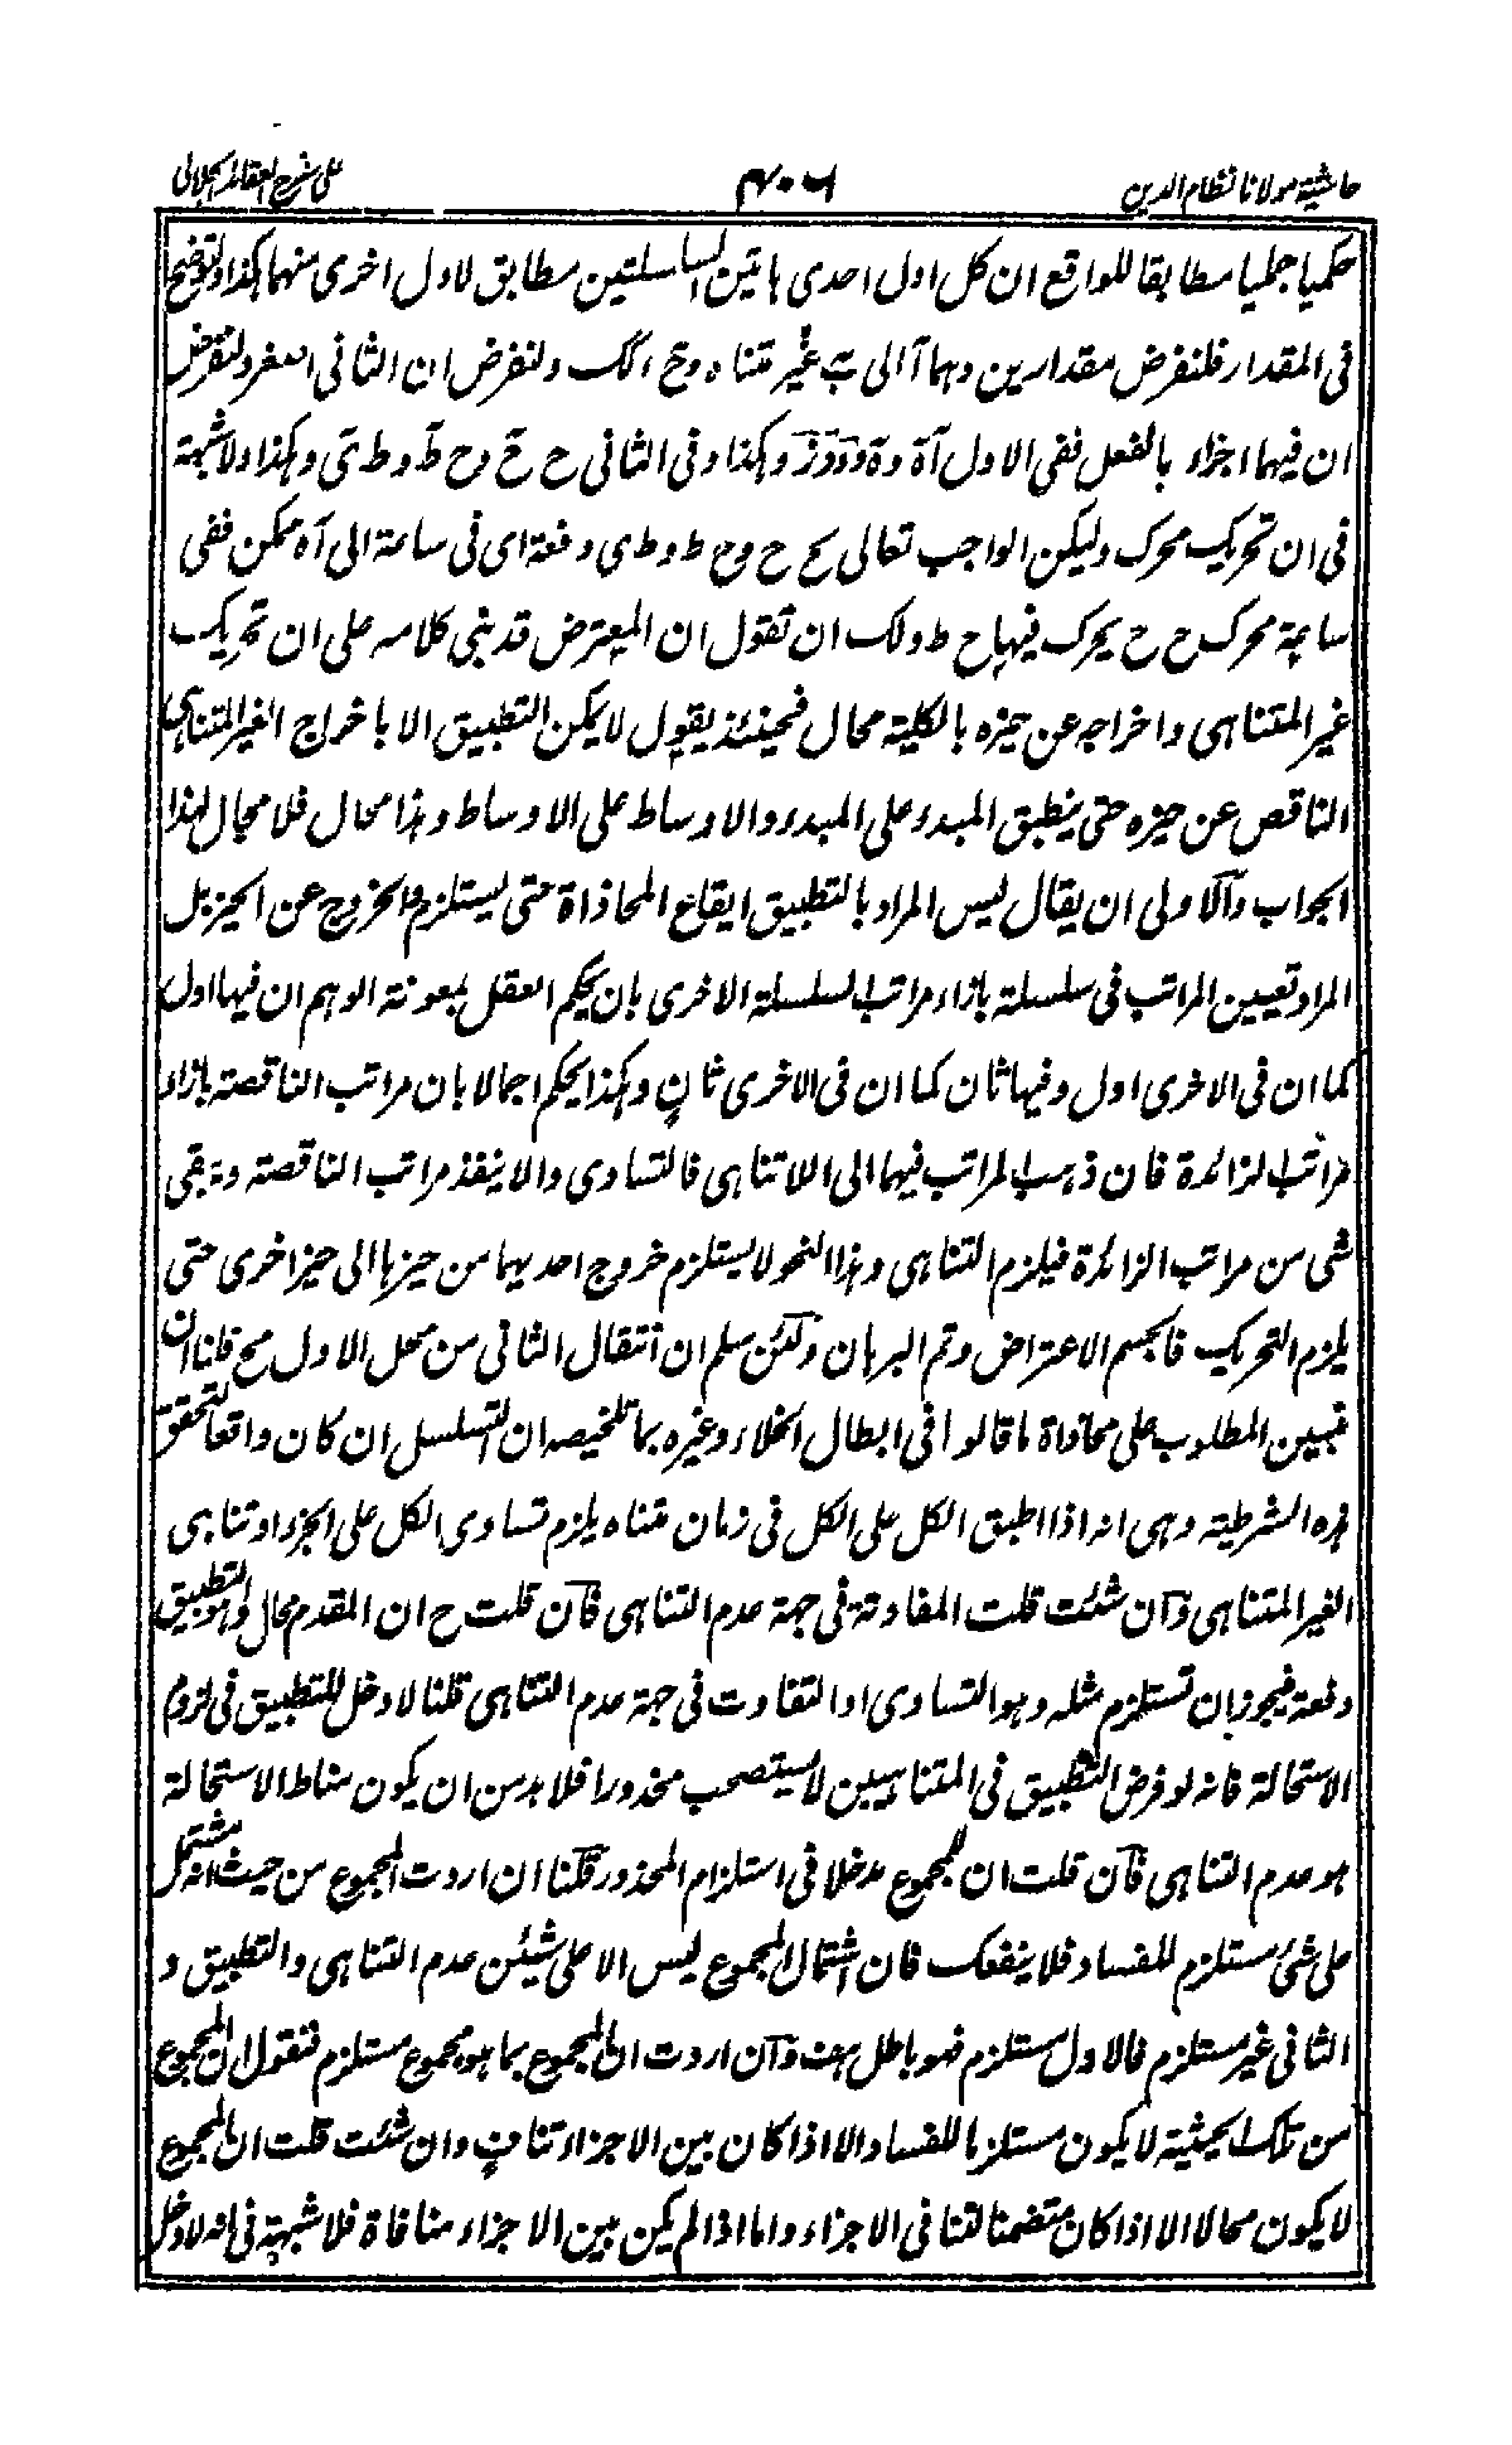 حاشية مولانا نظام الدين
على شرح العقائد الجلالى
حكميا جمليا مطابقا للواقع ان كل اول احدى هاتين السلسلتين مطابق لاول اخرى منهما هكذا ولتوضح
فى المقدار فلنفرض مقدارين وهما آ الى ب غير متناه و ح الك ولنفرض ان الثانى اصغر ولنفرض
ان فيهما اجزاء بالفعل ففى الاول آة وة و وز وهكذا وفى الثانى ح ح وح ط و ط ى وهكذا ولا شبهة
فى ان تحريك محرك وليكن الواجب تعالى ح ح وح ط و ط ى دفعة اى فى ساعة الى آه ممكن ففى
ساعة محرك ح ح يحرك فيها ح ط ولك ان تقول ان المعترض قد بنى كلامه على ان تحريك
غير المتناهى واخراجه عن حيزه بالكلية محال فحينئذ يقول لا يمكن التطبيق الا باخراج الغير المتناهى
الناقص عن حيزه حتى ينطبق المبدء على المبدء والاوساط على الاوساط وهذا محال فلا مجال لهذا
الجواب والاولى ان يقال ليس المراد بالتطبيق ايقاع المحاذاة حتى يستلزم الخروج عن الحيز بل
المراد تعيين المراتب فى سلسلة بازاء مراتب السلسلة الاخرى بان يحكم العقل بمعونة الوهم ان فيها اول
كما ان فى الاخرى اول وفيها ثان كما ان فى الاخرى ثان وهكذا يحكم اجمالا بان مراتب الناقصة بازاء
مراتب الزائدة فان ذهب المراتب فيهما الى اللاتناهى فالتساوى والا ينفذ مراتب الناقصة وتبقى
شى من مراتب الزائدة فيلزم التناهى وهذا النحو لا يستلزم خروج احديهما من حيزها الى حيز اخرى حتى
يلزم التحريك فانحسم الاعتراض وتم البرهان ولئن سلم ان انتقال الثانى من محل الاول مح قلنا ان
نبين المطلوب على محاذاة ما قالوا فى ابطال الخلاء وغيره بما تلخيصه ان التسلسل ان كان واقعا لتحقق
هذه الشرطية وهى انه اذا اطبق الكل على الكل فى زمان متناه يلزم تساوى الكل على الجزء او تناهى
الغير المتناهى وان شئت قلت المفاوتة فى جهة عدم التناهى فان قلت ح ان المقدم محال وهو التطبيق
دفعة فيجوز ان تستلزم مثله وهو التساوى او التفاوت فى جهة عدم التناهى قلنا لا دخل للتطبيق فى لزوم
الاستحالة فانه لو فرض التطبيق فى المتناهيين لا يستصحب محذورا فلا بد من ان يكون مناط الاستحالة
هو عدم التناهى فان قلت ان للمجموع مدخلا فى استلزام المحذور قلنا ان اردت المجموع من حيث انه مشتمل
على شئ مستلزم للفساد فلا ينفعك فان اشتمال المجموع ليس الا على شيئين عدم التناهى والتطبيق و
الثانى غير مستلزم فالاول مستلزم فهو باطل هف وان اردت ان المجموع بما هو مجموع مستلزم فنقول ان المجموع
من تلك الحيثية لا يكون مستلزما للفساد الا اذا كان بين الاجزاء تناف وان شئت قلت ان المجموع
لا يكون محالا الا اذا كان متضمنا لتنافى الاجزاء واما اذا لم يكن بين الاجزاء منافاة فلا شبهة فى انه لا دخل